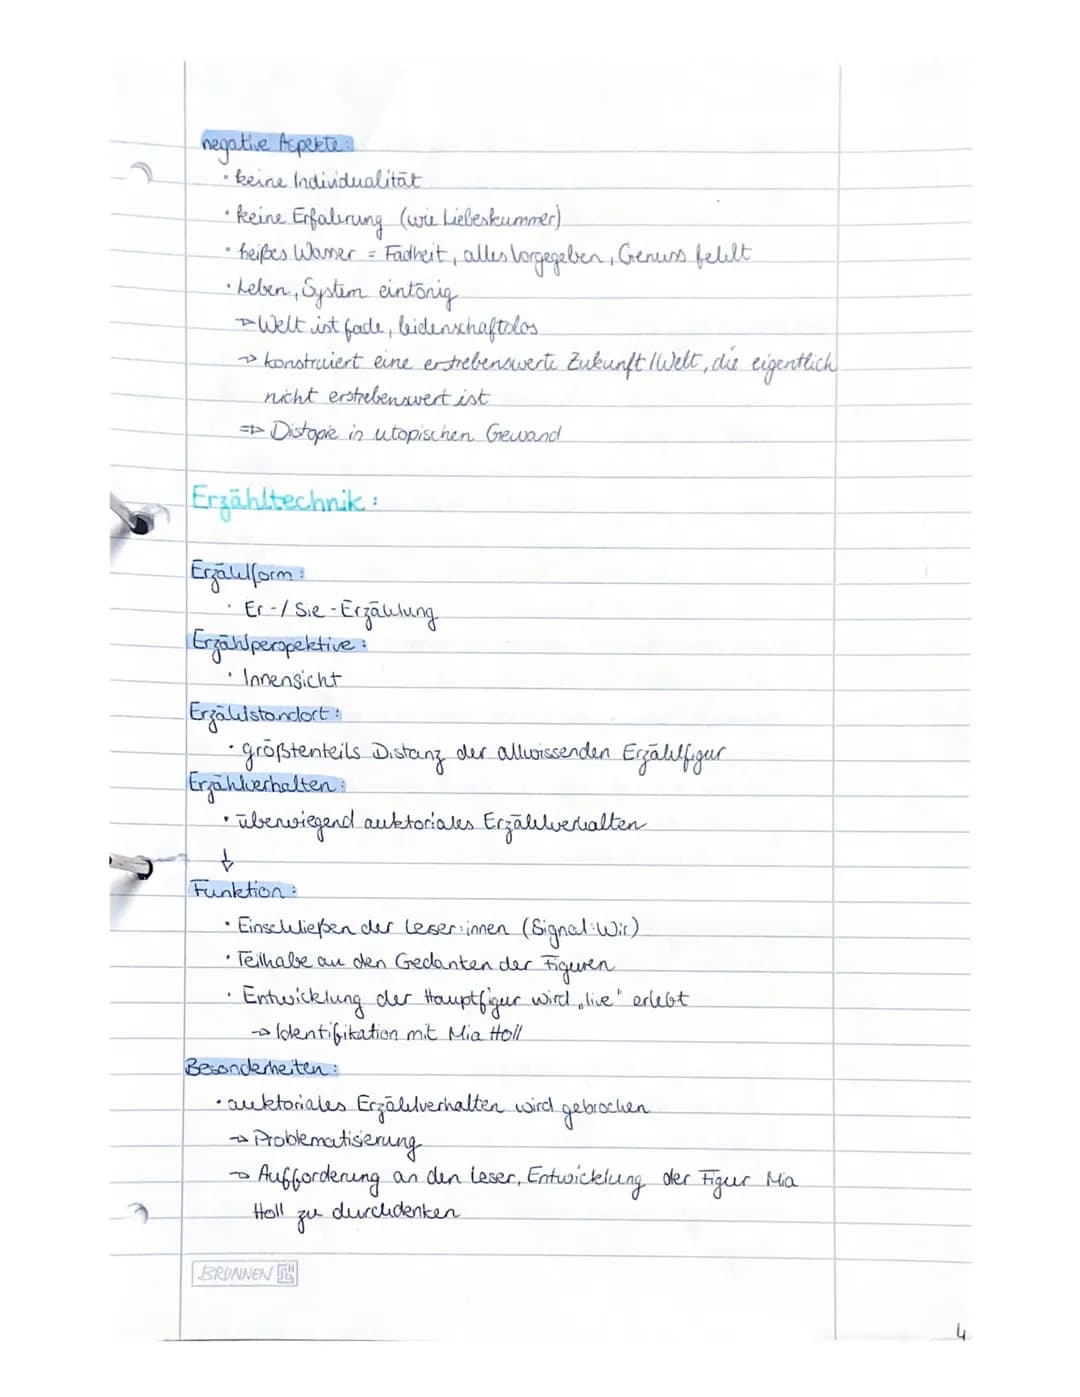 negative Aspekte:
· keine Individualität
· keine Erfahrung (wie Liebeskummer)
· heißes Wasser = Fadheit, alles Vorgegeben, Genuss fehlt
· Leben, System eintönig
→ Welt ist fade, leidenschaftslos
→ konstruiert eine erstrebenswerte Zukunft/Welt, die eigentlich
nicht erstrebenswert ist
⇒ Distopie in utopischen Gewand
Erzähltechnik:
Erzählform:
· Er-/Sie-Erzählung
Erzählperspektive:
· Innensicht
Erzählstandort:
· größtenteils Distanz der allwissenden Erzählfigur
Erzählverhalten:
· überwiegend auktoriales Erzählverhalten
↓
Funktion:
· Einschließen der Leser:innen (Signal:Wir)
· Teilhabe an den Gedanken der Figuren
· Entwicklung der Hauptfigur wird „live" erlebt
→ Identifikation mit Mia Holl
Besonderheiten:
· auktoriales Erzählverhalten wird gebrochen
→ Problematisierung
→ Aufforderung an den Leser, Entwicklung der Figur Mia
Holl zu durchdenken
BRUNNEN
4